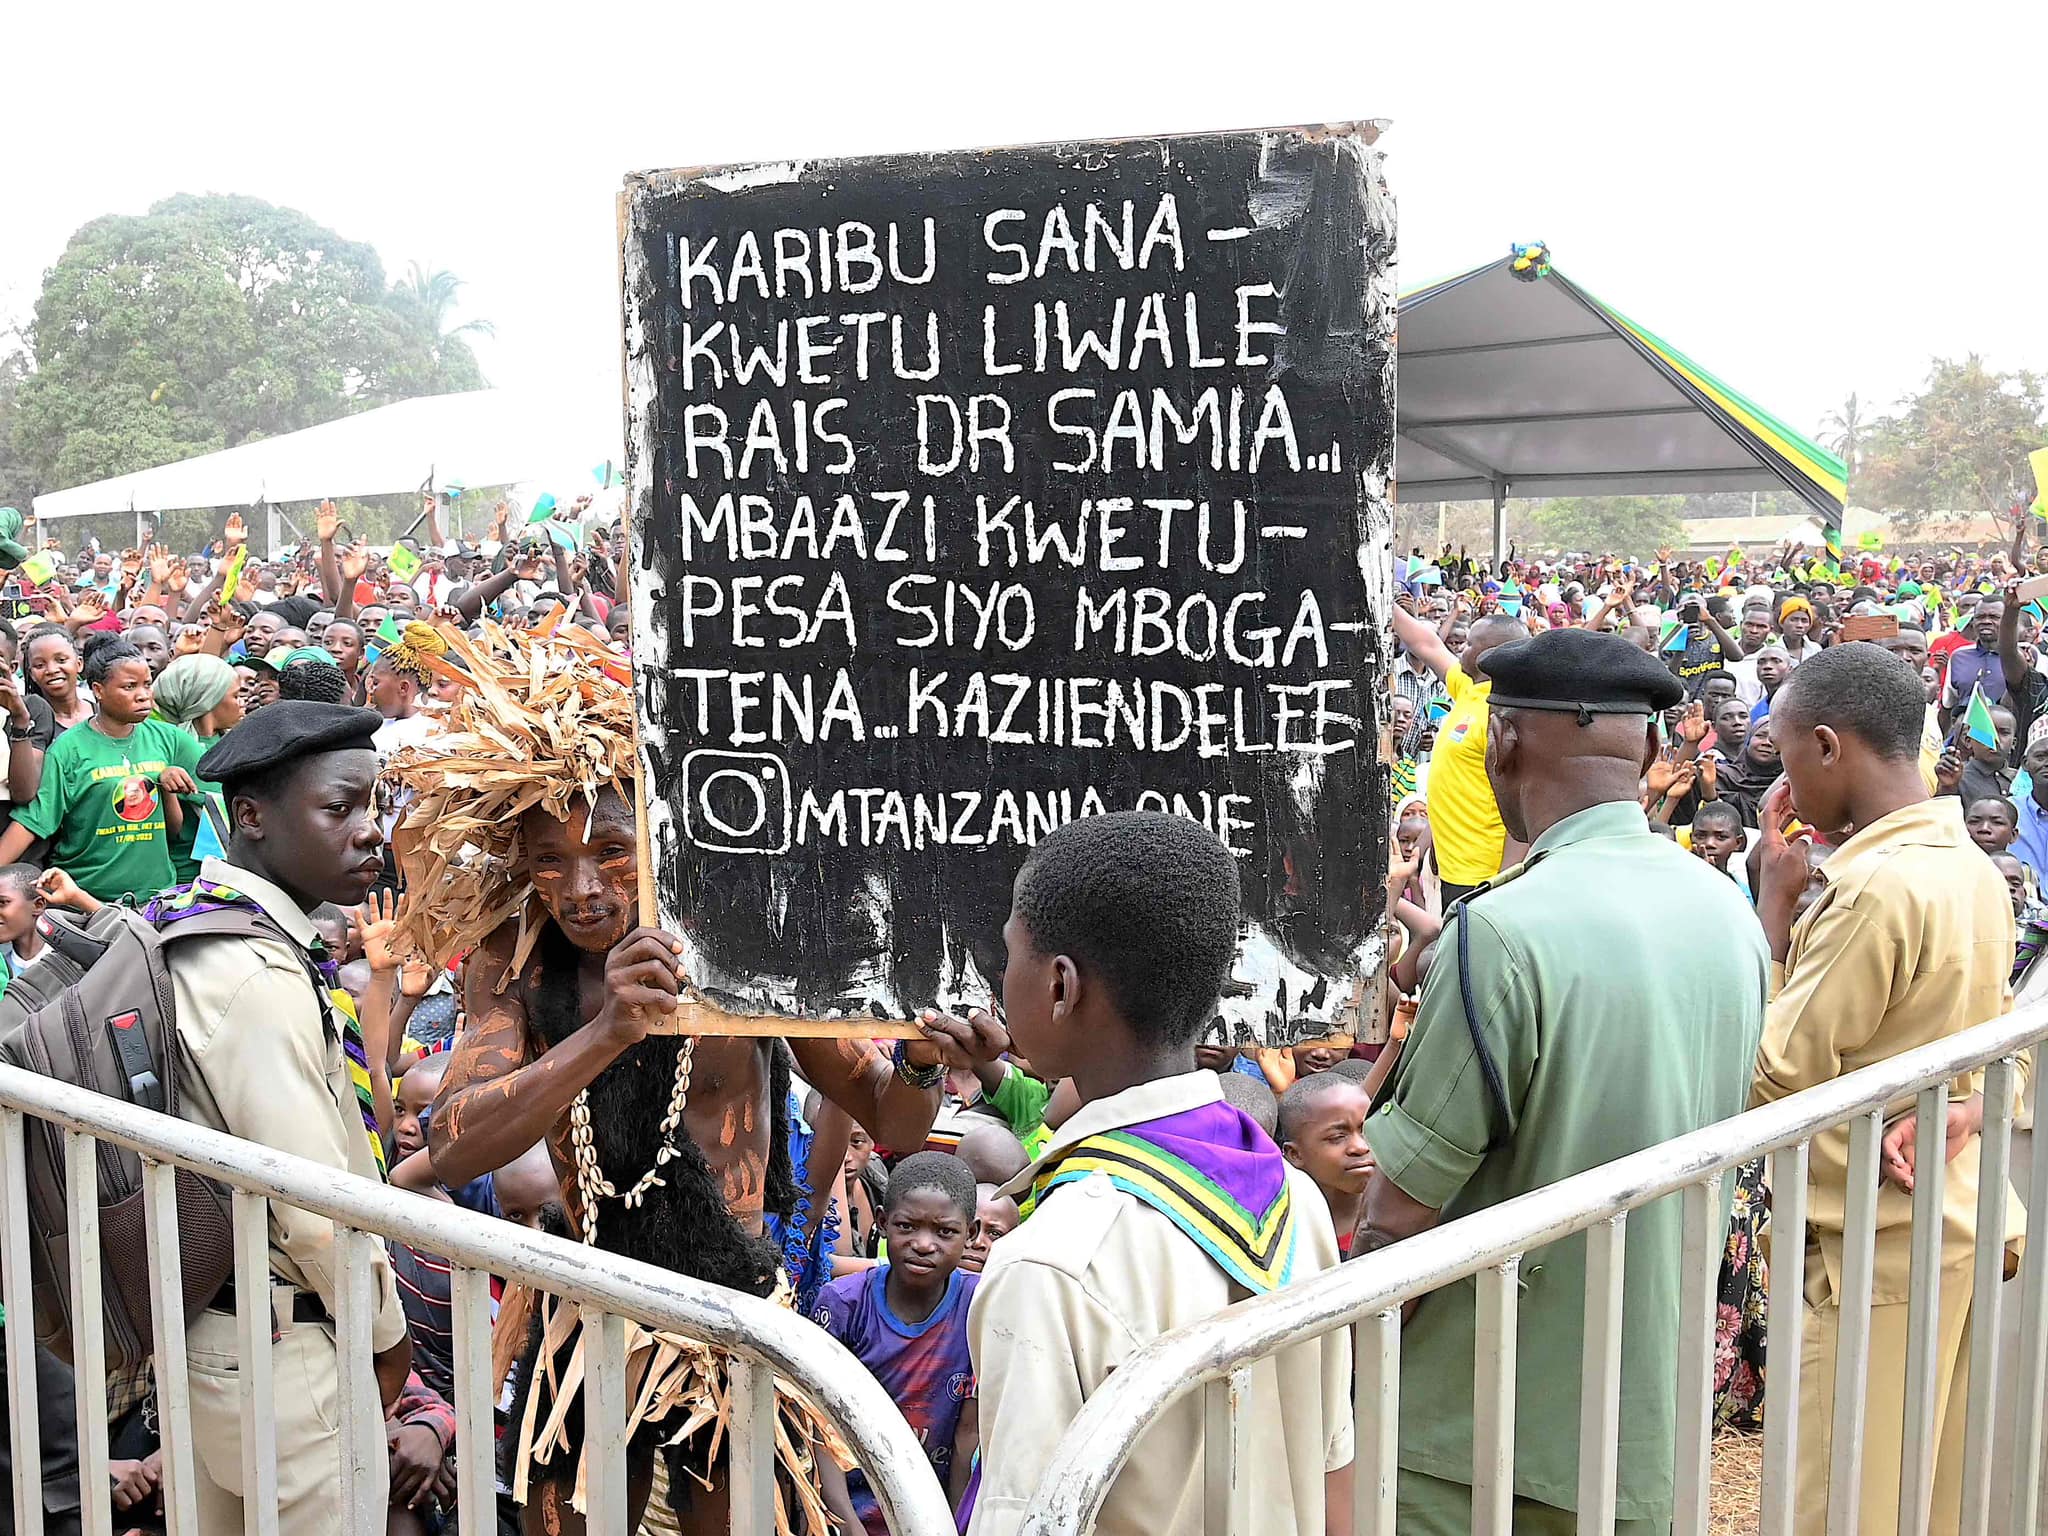 KARIBU SANA-
KWETU LIWALE
RAIS DR SAMIA...
MBAAZI KWETU-
PESA SIYO MBOGA-
TENA...KAZIIENDELEE
MTANZANIA
KARIBU
17/09/2023
SportPesa